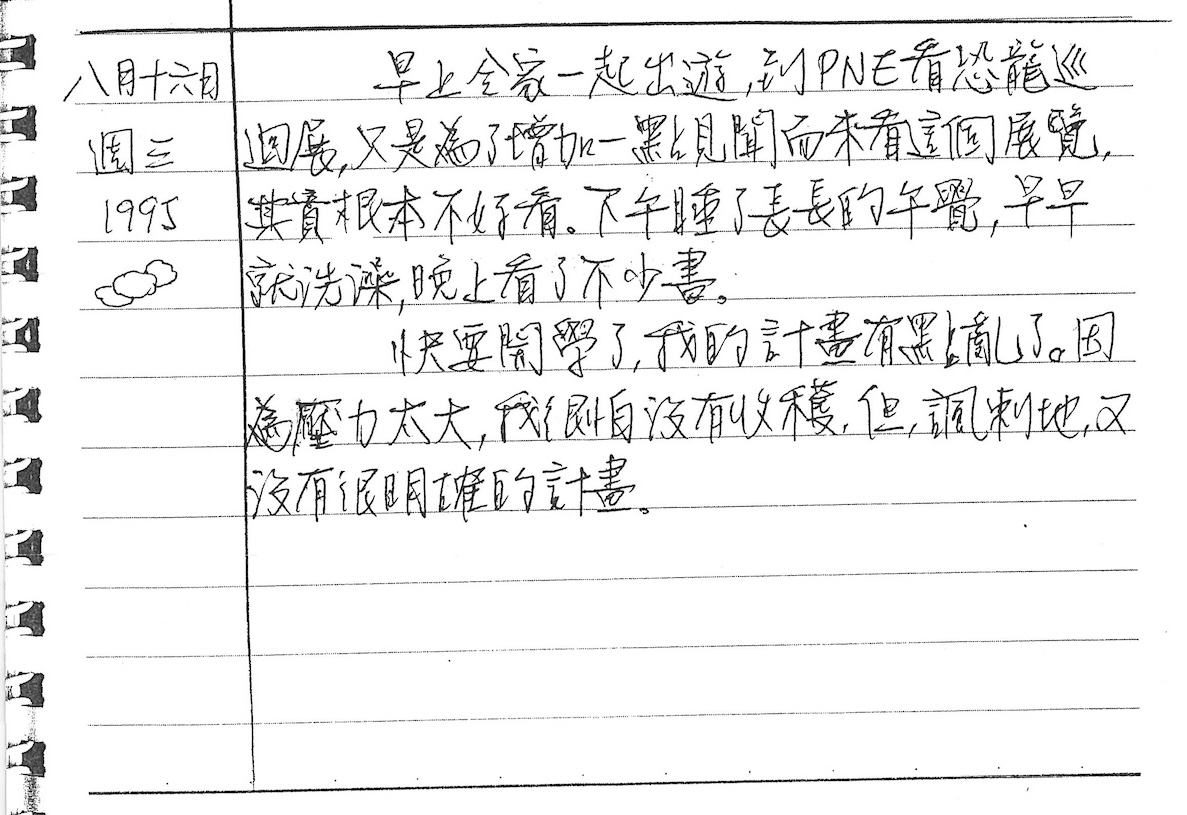 八月十六日
週三
1995
早上全家一起出遊,到PNE看恐龍巡
迴展,只是為了增加一點見聞而來看這個展覽,
其實根本不好看。下午睡了長長的午覺,早早
就洗澡,晚上看了不少書。
快要開學了,我的計畫有點亂了。因
為壓力太大,我很怕沒有收穫,但,諷刺地,又
沒有很明確的計畫。